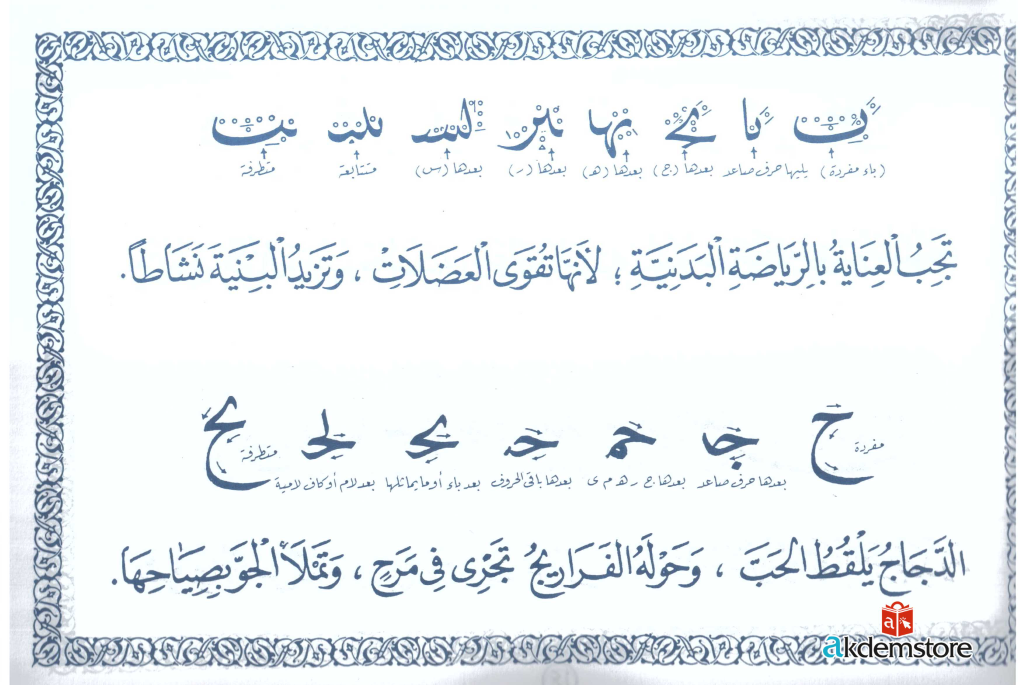 (باء مفردة) يليها حرف صاعد بعدها (ج) بعدها (ه) بعدها (ر) بعدها (س) متتابعة متطرفة
تَجِبُ الْعِنَايَةُ بِالرِّيَاضَةِ الْبَدَنِيَّةِ ؛ لِأَنَّهَا تُقَوِّى الْعَضَلَاتِ ، وَتَزِيدُ الْبِنْيَةَ نَشَاطاً.
مفردة متطرفة
بعدها حرف صاعد بعدها ج ر ه م ى بعدها باقى الحروف بعد باء أو ما يماثلها بعد لام أو كاف لامية
الدَّجَاجُ يَلْقُطُ الْحَبَّ ، وَحَوْلَهُ الْفَرَارِيجُ تَجْرِى فِى مَرَحٍ ، وَتَمْلَأُ الْجَوَّ بِصِيَاحِهَا.
akdemstore